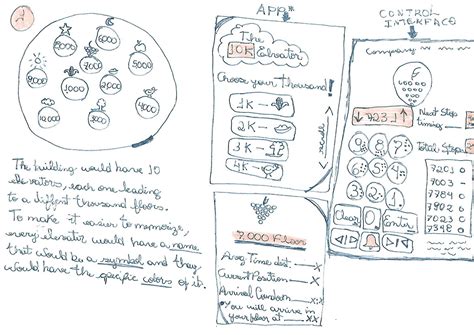 6000
8000
5000
7000
9000
3000
1000
2000
10000
4000
The building would have 10
elevators, each one leading
to a diffent thousand floors.
To make it easier to memorize,
every elevator would have a name
that would be a symbol and they
would have the specific colors of it.
APP*
The
10K Elevator
Choose your thousand!
1K
2K
3K
4K
7.000 Floor
Avg Time dist. XX
Current Position XX
Arrival Countdown XX
*You will arrive in
your floor at XX
CONTROL
INTERFACE
Company
↓ 7231 ↑
Next Stop
timing
Total Stops
7 8 9
4 5 6
3 2 1
Clear 0 Enter
7201 0
7003
7784 0
7902 0
7523 0
7348 0